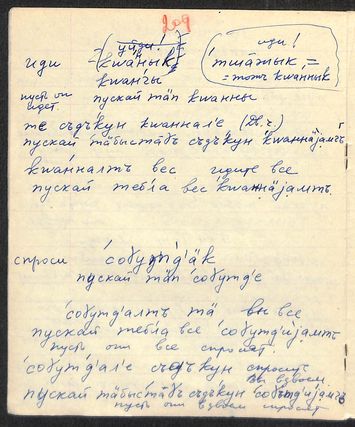 209
(уйди!)
иди = кwанык
кwанчы
иди!
тша̄тык, =
= тотъ кwаннык
пусть он идет. пускай тап кwанны
те съдъкун кwаннал'е (Дв.ч.)
пускай тӓбыста̄ґъ съдъкун кwаннӓјамтъ
кwанналтъ вес идите все
пускай теб̄ла вес кwаннӓјамтъ.
спроси соґутд'ӓк
пускай тап соґутд'е
соґутд'алтъ тӓ вы все
пускай теб̄ла все соґутд'ијамтъ
пусть они все спросят.
соґутд'ал'е съдъкун спросит
вы вдвоем.
пускай тӓбыста̄ґъ съдъкун соґътд'ијамтъ
пусть они вдвоем спросят